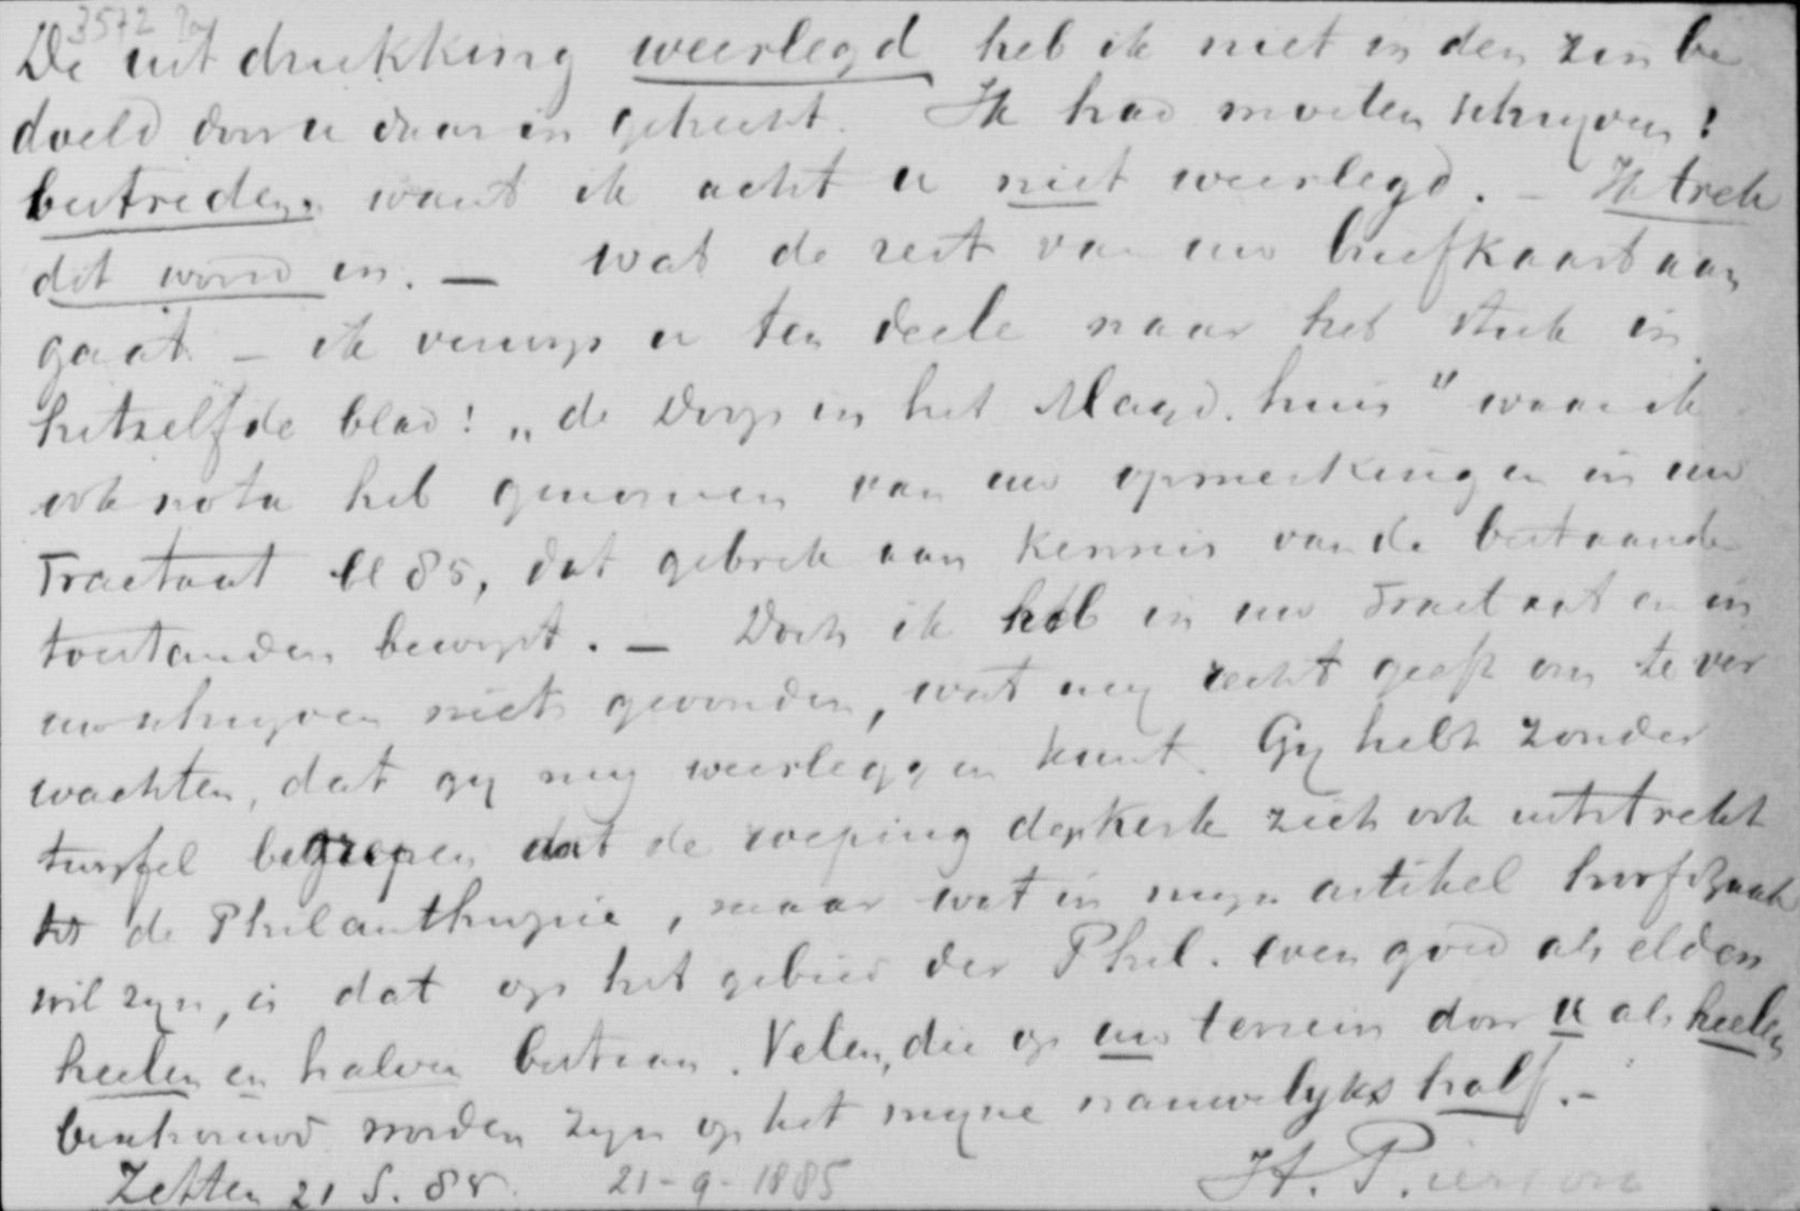 3572
De uitdrukking weerlegd heb ik niet in den zin be
doeld door u daar in gehecht. Ik had moeten schryven:
bestreden, want ik acht u niet weerlegd. – Ik trek
dit woord in. – Wat de rest van uw briefkaart aan
gaat – ik verwys u ten deele naar het stuk in
hetzelfde blad: „de Dorp in het Magd. huis" waar ik
ook nota heb genomen van uw opmerkingen in uw
Tractaat bl 85, dat gebrek aan kennis van de bestaande
toestanden bewyst. – Doch ik heb in uw Tractaat en in
uw schryven niets gevonden, wat my recht geeft om te ver
wachten, dat gy my weerleggen kunt. Gy hebt zonder
twyfel begrepen dat de roeping der Kerk zich ook uitstrekt
tot de Philanthropie, maar wat in myn artikel hoofdzaak
wil zyn, is dat op het gebied der Phil. even goed als elders
heelen en halven bestaan. Velen, die op uw terrein door u als heelen
beschouwd worden zyn op het myne nauwelyks half. –
Zetten 21 S. 85. 21-9-1885 H. Pierson